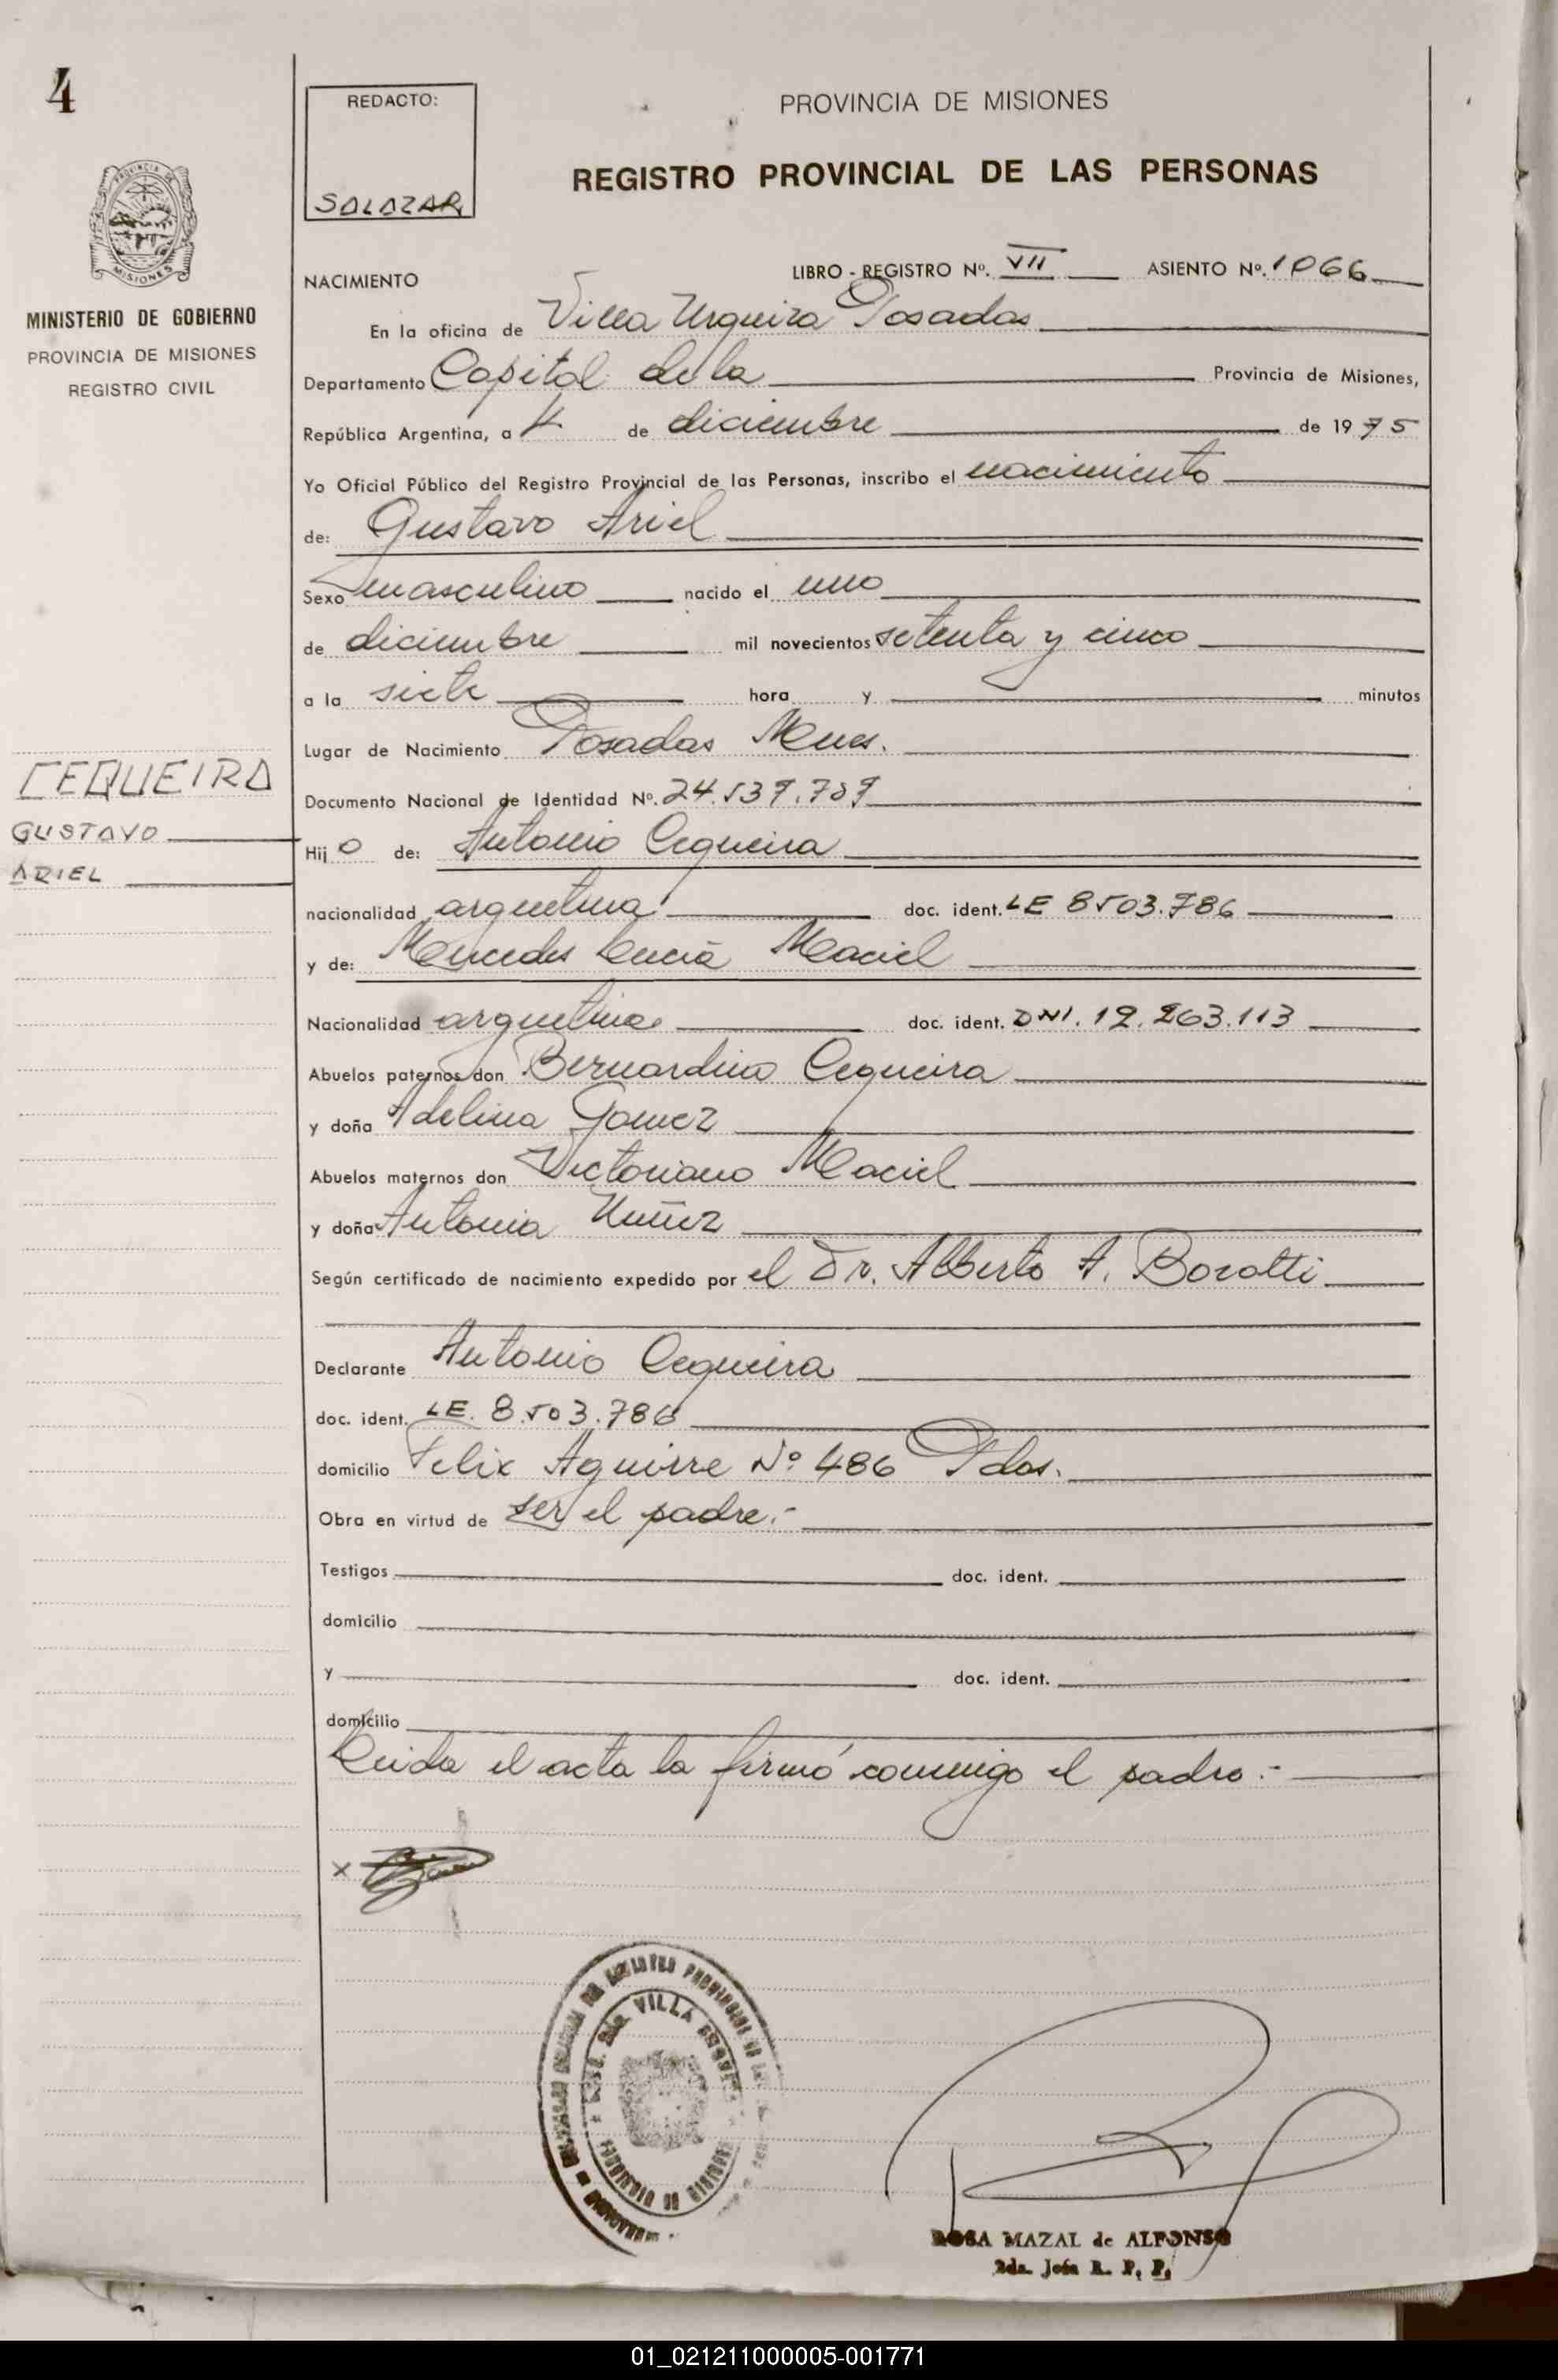 4
REDACTO:
SALAZAR
PROVINCIA DE MISIONES
REGISTRO PROVINCIAL DE LAS PERSONAS
PROVINCIA DE
MISIONES
MINISTERIO DE GOBIERNO
PROVINCIA DE MISIONES
REGISTRO CIVIL
NACIMIENTO LIBRO - REGISTRO Nº. VII ASIENTO Nº. 1066
En la oficina de Villa Urquiza Posadas
Departamento Capital de la Provincia de Misiones,
República Argentina, a 4 de diciembre de 1975
Yo Oficial Público del Registro Provincial de las Personas, inscribo el nacimiento
de: Gustavo Ariel
Sexo masculino nacido el uno
de diciembre mil novecientos setenta y cinco
a la siete hora y minutos
Lugar de Nacimiento Posadas Mnes.
CEQUEIRA
GUSTAVO
ARIEL
Documento Nacional de Identidad Nº.
Hijo de: Antonio Cequeira
nacionalidad argentina doc. ident. LE 8503.786
y de: Mercedes Lucia Maciel
Nacionalidad argentina doc. ident. DNI. 12.263.113
Abuelos paternos don Bernardino Cequeira
y doña Adelina Gomez
Abuelos maternos don Victoriano Maciel
y doña Antonia Nuñez
Según certificado de nacimiento expedido por el Dr. Alberto A.
Declarante Antonio Cequeira
doc. ident. LE. 8.503.786
domicilio Felix Aguirre Nº 486 Pdas.
Obra en virtud de ser el padre.-
Testigos doc. ident.
domicilio
y doc. ident.
domicilio
Leida el acta la firmó conmigo el padre.-
x
VILLA
ROSA MAZAL de ALFONSO
2da. Jefa R. P. P.
01_021211000005-001771